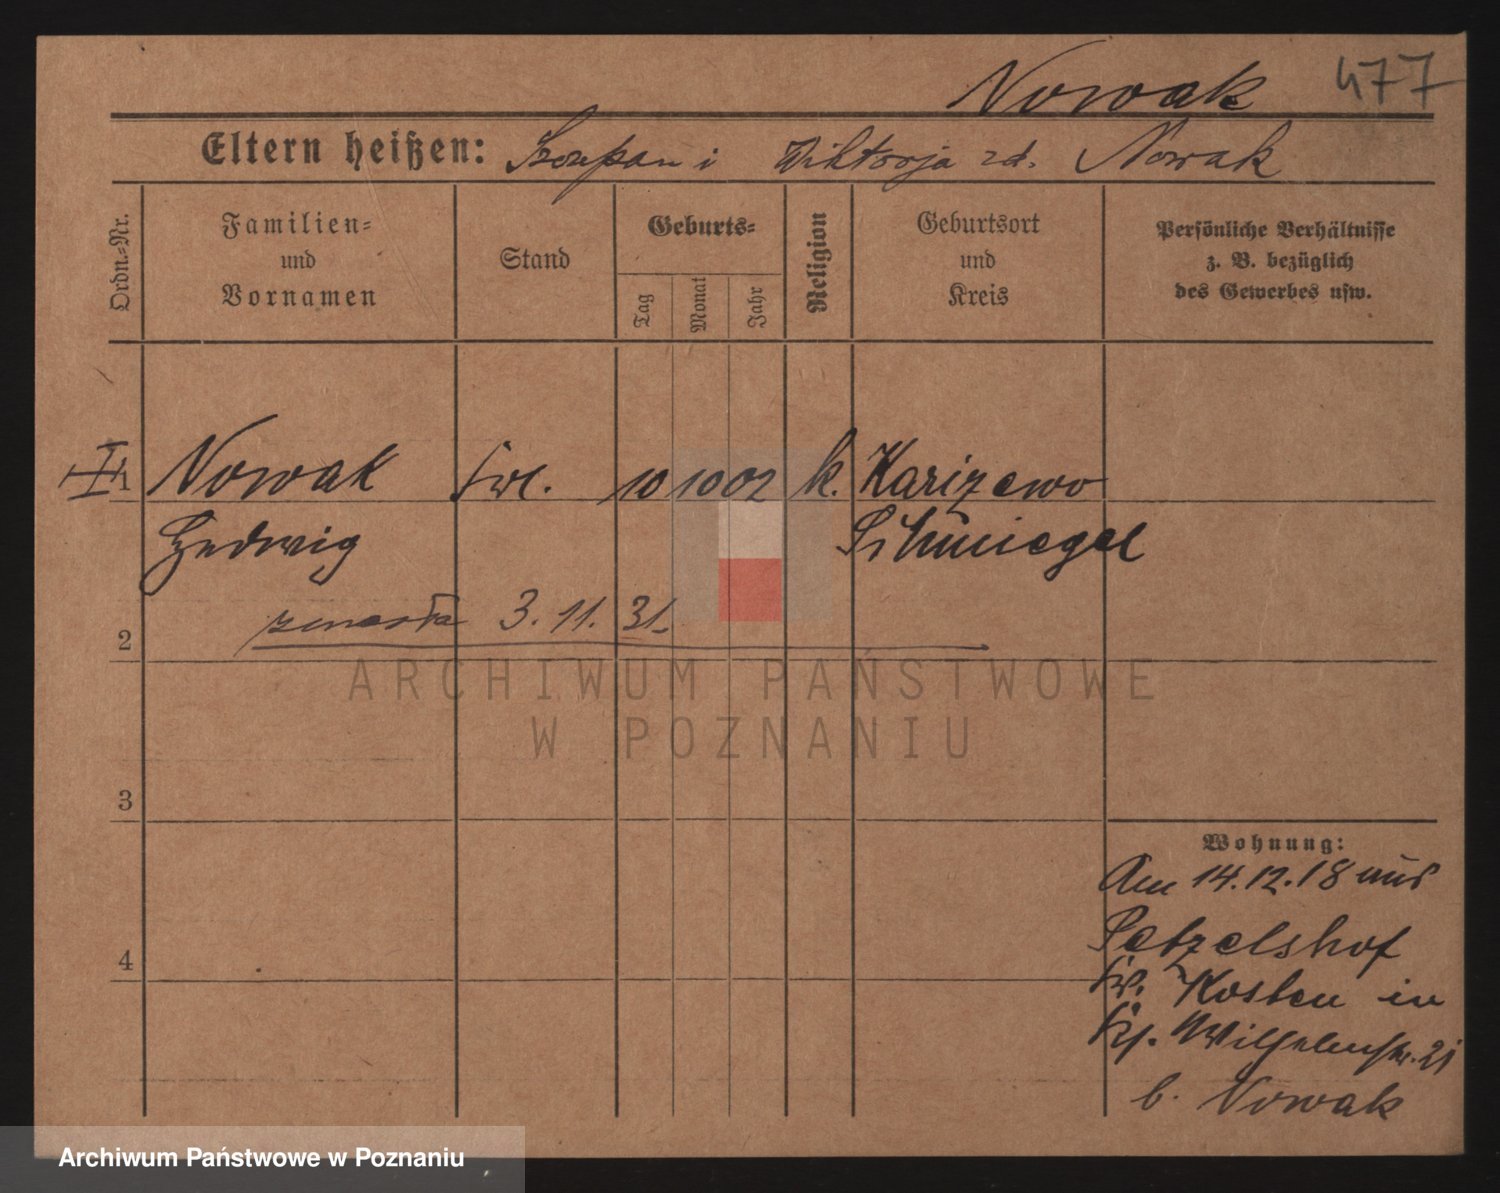 Nowak 477
Eltern heißen: Szczepan i Wiktorja zd. Nowak
Ordn.-Nr.
Familien-
und
Vornamen
Stand
Geburts-
Tag
Monat
Jahr
Religion
Geburtsort
und
Kreis
Persönliche Verhältnisse
z. B. bezüglich
des Gewerbes usw.
1 Nowak Frl. 10 10 02 k. Karizewo
Hedwig Schmiegel
zmarła 3.11.31.
2
ARCHIWUM PAŃSTWOWE
W POZNANIU
3
Wohnung:
Am 14.12.18 aus
Petzelshof
Kr. Kosten in
Wilhelmstr. 21
b. Nowak
4
Archiwum Państwowe w Poznaniu